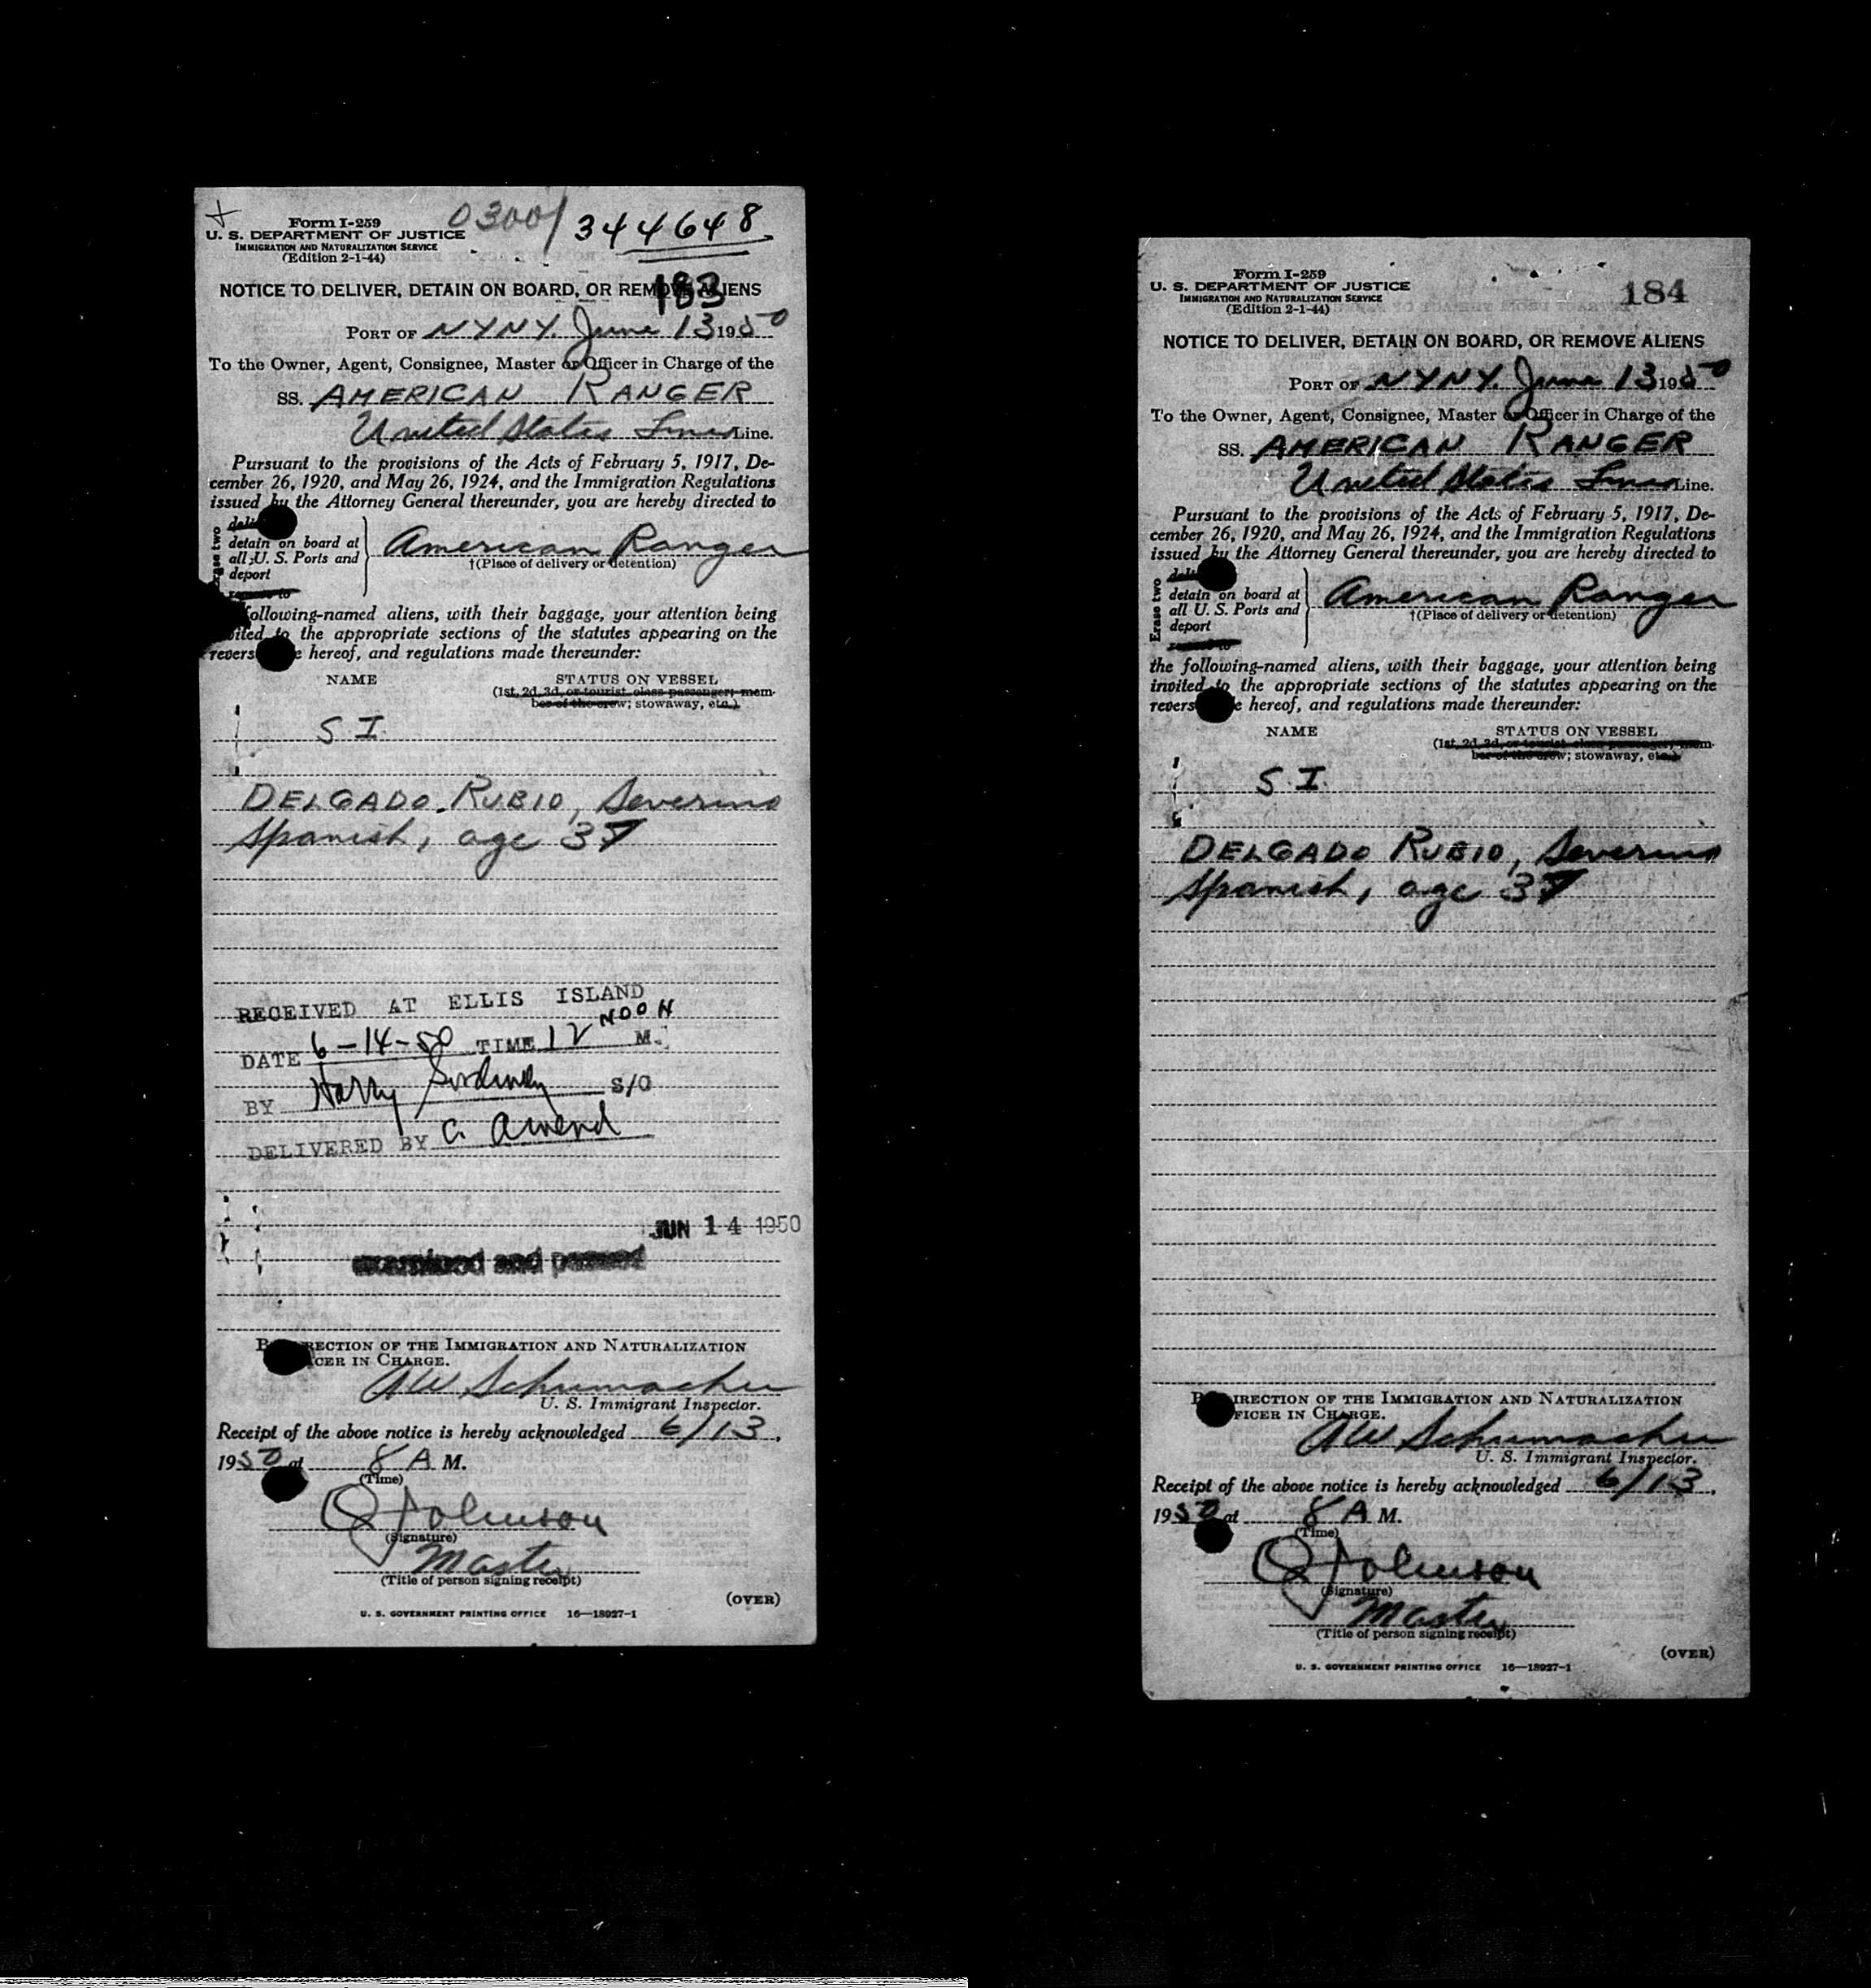 Form I-259
U. S. DEPARTMENT OF JUSTICE
IMMIGRATION AND NATURALIZATION SERVICE
(Edition 2-1-44)
0300/ 344648
183
NOTICE TO DELIVER, DETAIN ON BOARD, OR REMOVE ALIENS
PORT OF NYNY. June 13 1950
To the Owner, Agent, Consignee, Master or Officer in Charge of the
SS. AMERICAN RANGER
United States Lines Line.
Pursuant to the provisions of the Acts of February 5, 1917, De-
cember 26, 1920, and May 26, 1924, and the Immigration Regulations
issued by the Attorney General thereunder, you are hereby directed to
Erase two
detain on board at
all U. S. Ports and
deport
American Ranger
†(Place of delivery or detention)
following-named aliens, with their baggage, your attention being
invited to the appropriate sections of the statutes appearing on the
hereof, and regulations made thereunder:
NAME STATUS ON VESSEL
(1st, 2d, 3d, or tourist class passenger; mem-
ber of the crew; stowaway, etc.)
S I.
DELGADO RUBIO, Severino
Spanish, age 37
RECEIVED AT ELLIS ISLAND
DATE 6-14-50 TIME 12 NOON M.
BY Harry S/O
DELIVERED BY C. Amend
JUN 14 1950
examined and passed
DIRECTION OF THE IMMIGRATION AND NATURALIZATION
OFFICER IN CHARGE.
AW Schumacher
U. S. Immigrant Inspector.
Receipt of the above notice is hereby acknowledged 6/13,
1950 at 8 A M.
(Time)
Johnson
(Signature)
Master
(Title of person signing receipt)
(OVER)
U. S. GOVERNMENT PRINTING OFFICE 16—18927-1
Form I-259
U. S. DEPARTMENT OF JUSTICE
IMMIGRATION AND NATURALIZATION SERVICE
(Edition 2-1-44)
184
NOTICE TO DELIVER, DETAIN ON BOARD, OR REMOVE ALIENS
PORT OF NYNY. June 13 1950
To the Owner, Agent, Consignee, Master or Officer in Charge of the
SS. AMERICAN RANGER
United States Lines Line.
Pursuant to the provisions of the Acts of February 5, 1917, De-
cember 26, 1920, and May 26, 1924, and the Immigration Regulations
issued by the Attorney General thereunder, you are hereby directed to
Erase two
detain on board at
all U. S. Ports and
deport
American Ranger
†(Place of delivery or detention)
the following-named aliens, with their baggage, your attention being
invited to the appropriate sections of the statutes appearing on the
hereof, and regulations made thereunder:
NAME STATUS ON VESSEL
(1st, 2d, 3d, or tourist class passenger; mem-
ber of the crew; stowaway, etc.)
S I.
DELGADO RUBIO, Severino
Spanish, age 37
DIRECTION OF THE IMMIGRATION AND NATURALIZATION
OFFICER IN CHARGE.
AW Schumacher
U. S. Immigrant Inspector.
Receipt of the above notice is hereby acknowledged 6/13,
1950 at 8 A M.
(Time)
Johnson
(Signature)
Master
(Title of person signing receipt)
(OVER)
U. S. GOVERNMENT PRINTING OFFICE 16—18927-1